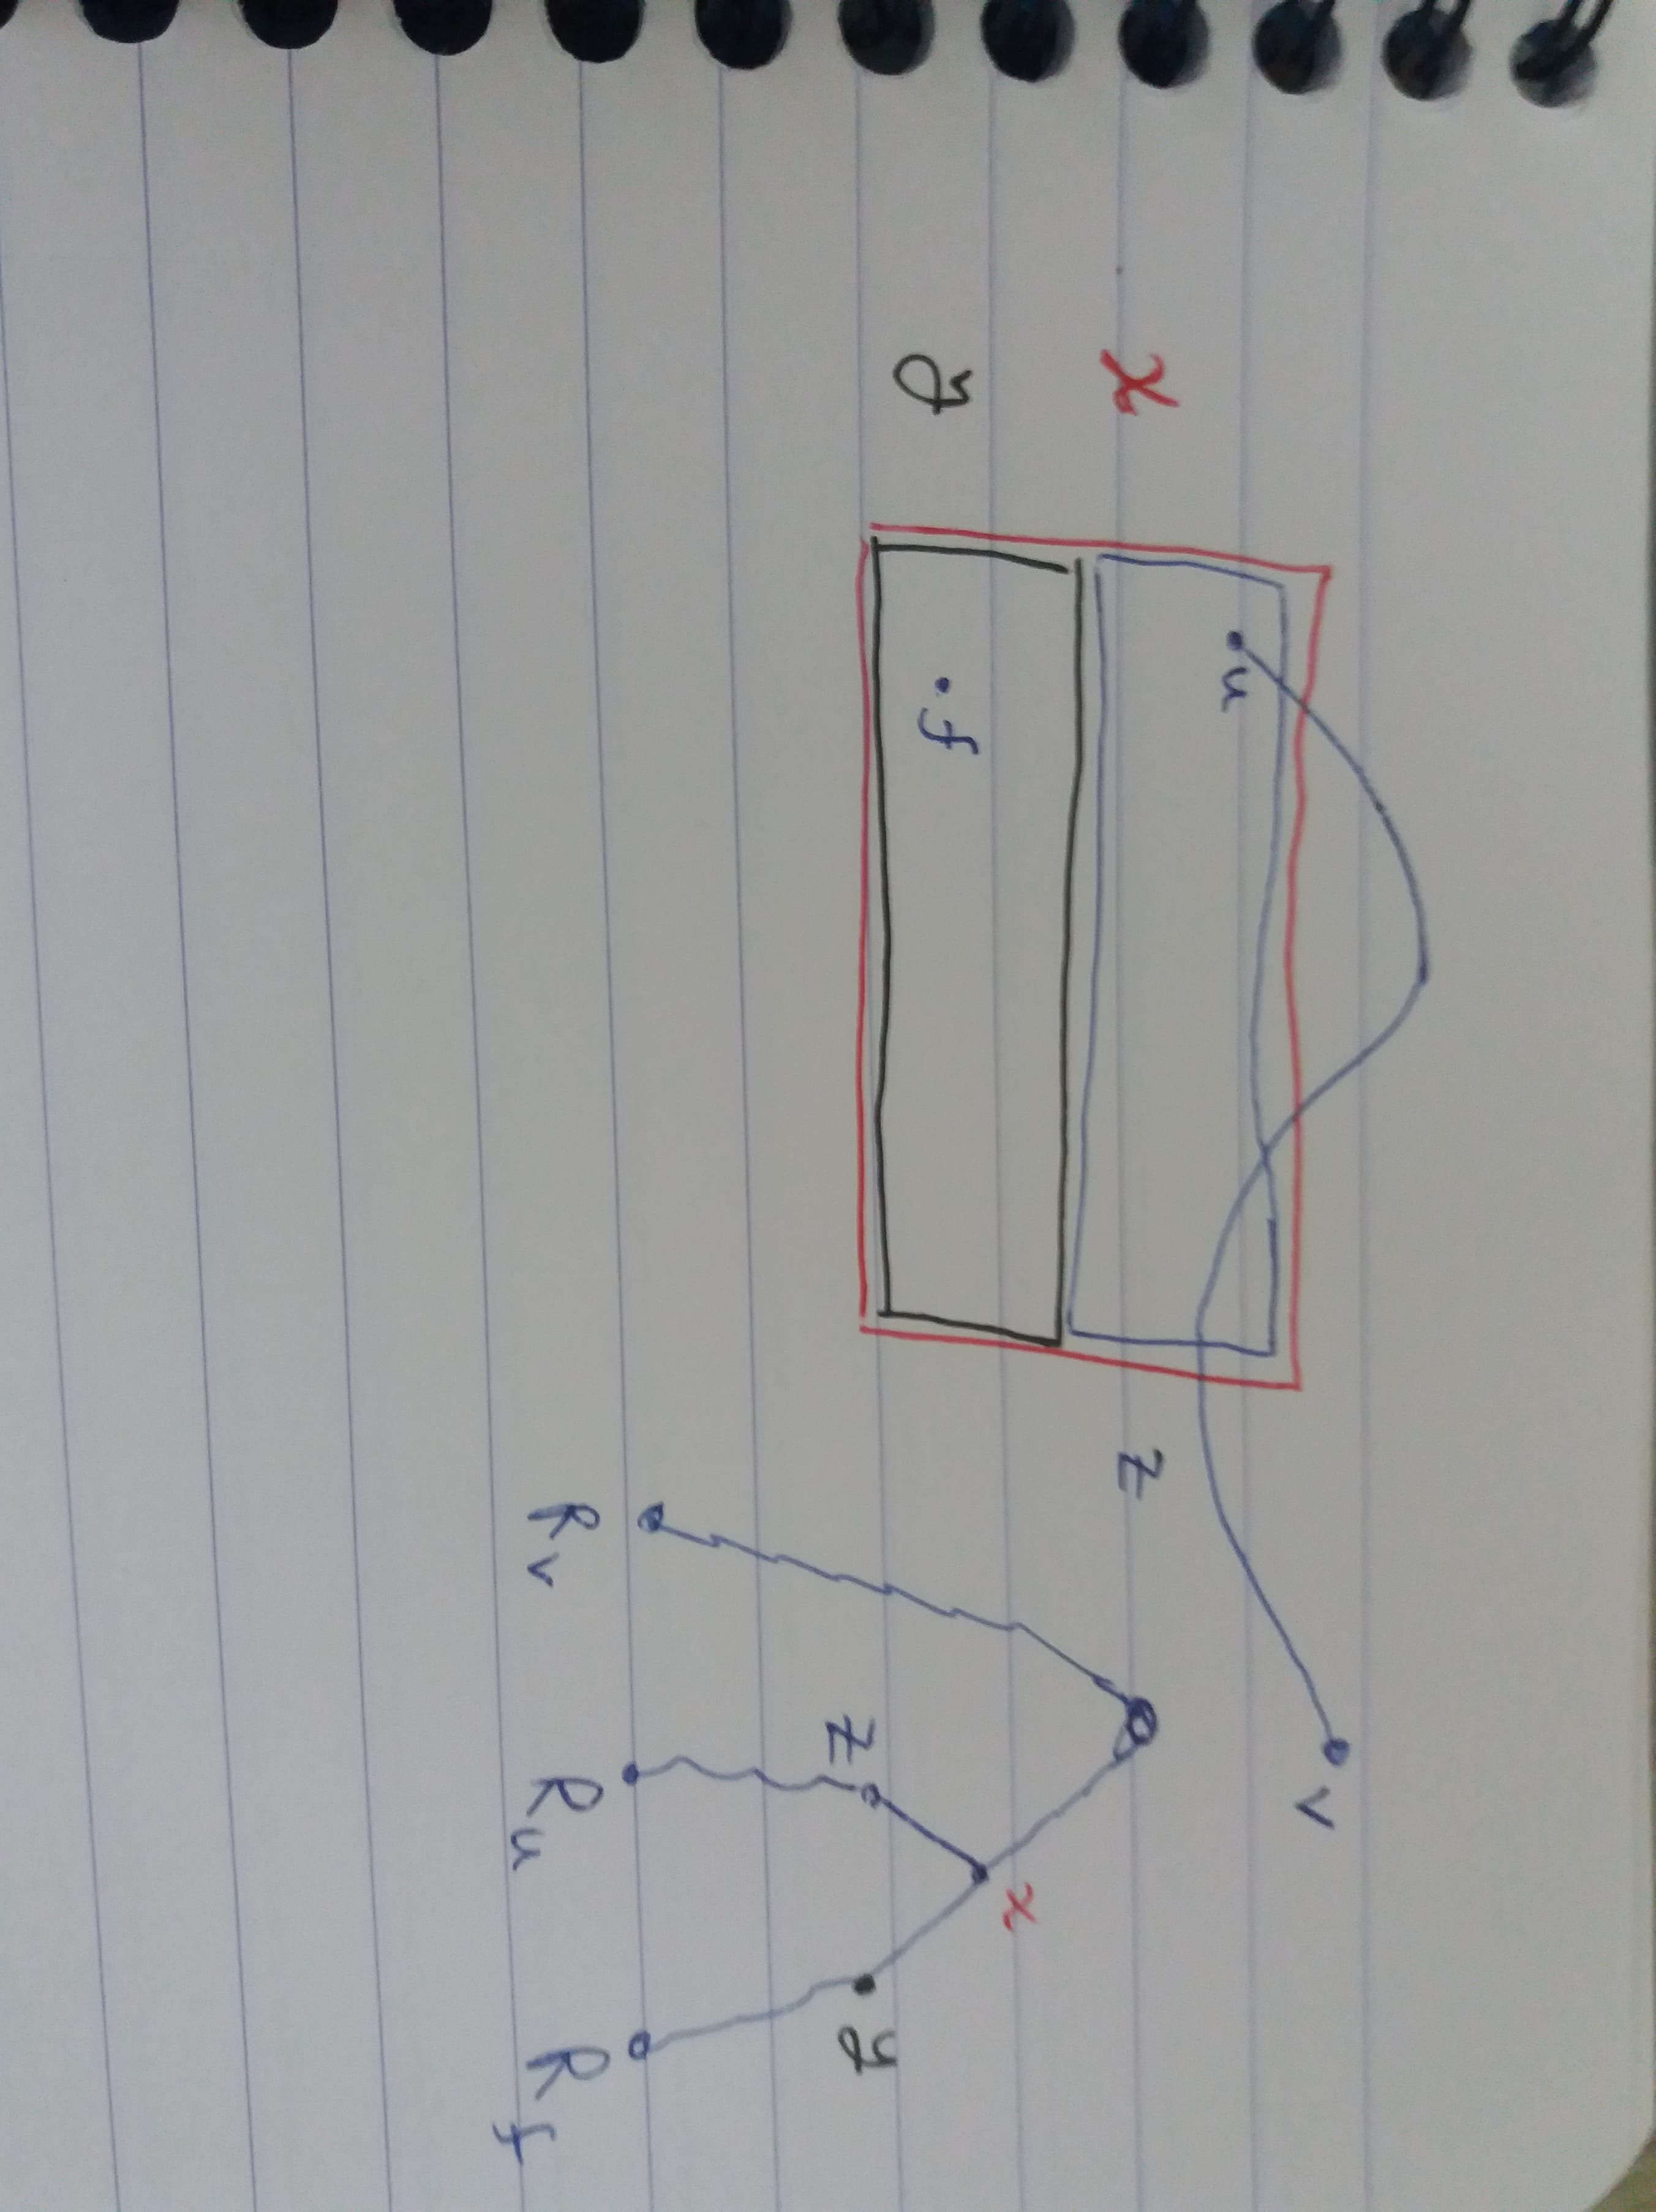 u
v
x
z
y
f
x
z
y
R_v
R_u
R_f